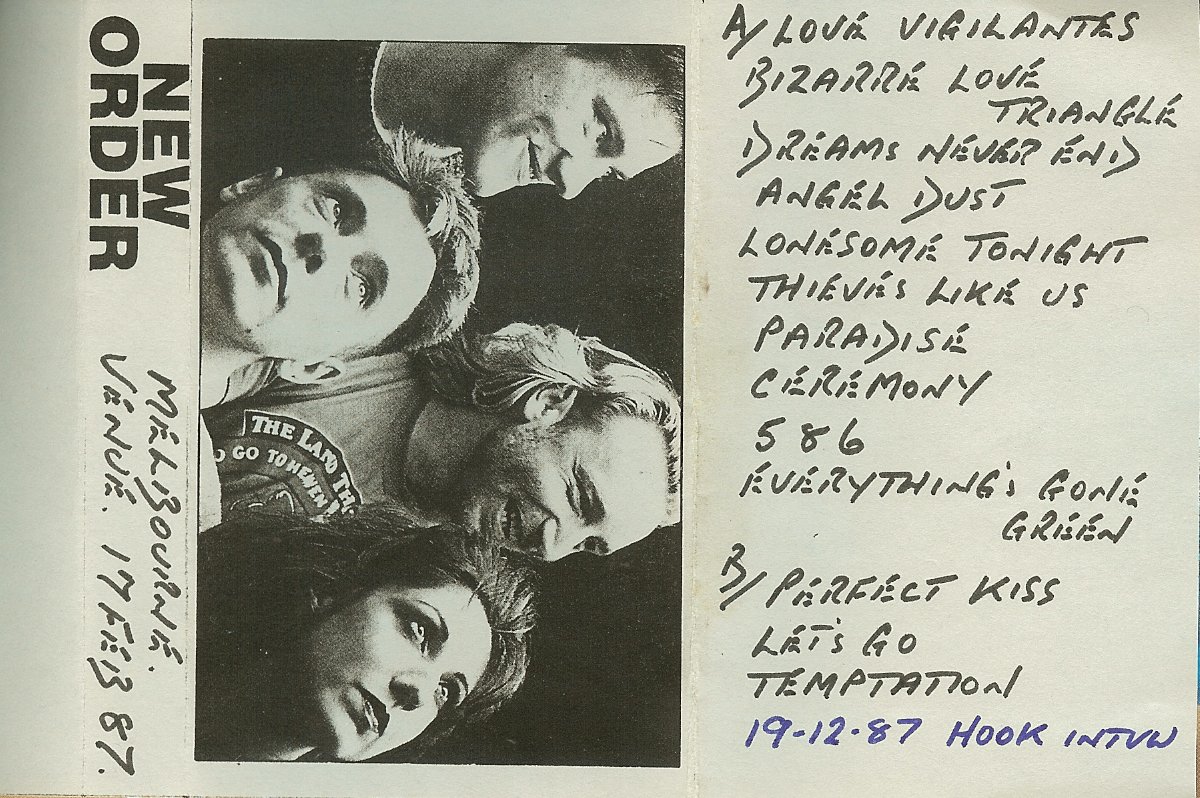 NEW
ORDER
MELBOURNE.
VENUE. 17 FEB 87.
THE LAND TH
O GO TO HEAVEN
A/ LOVE VIGILANTES
BIZARRE LOVE
TRIANGLE
DREAMS NEVER END
ANGEL DUST
LONESOME TONIGHT
THIEVES LIKE US
PARADISE
CEREMONY
586
EVERYTHING'S GONE
GREEN
B/ PERFECT KISS
LET'S GO
TEMPTATION
19-12-87 HOOK INTVW